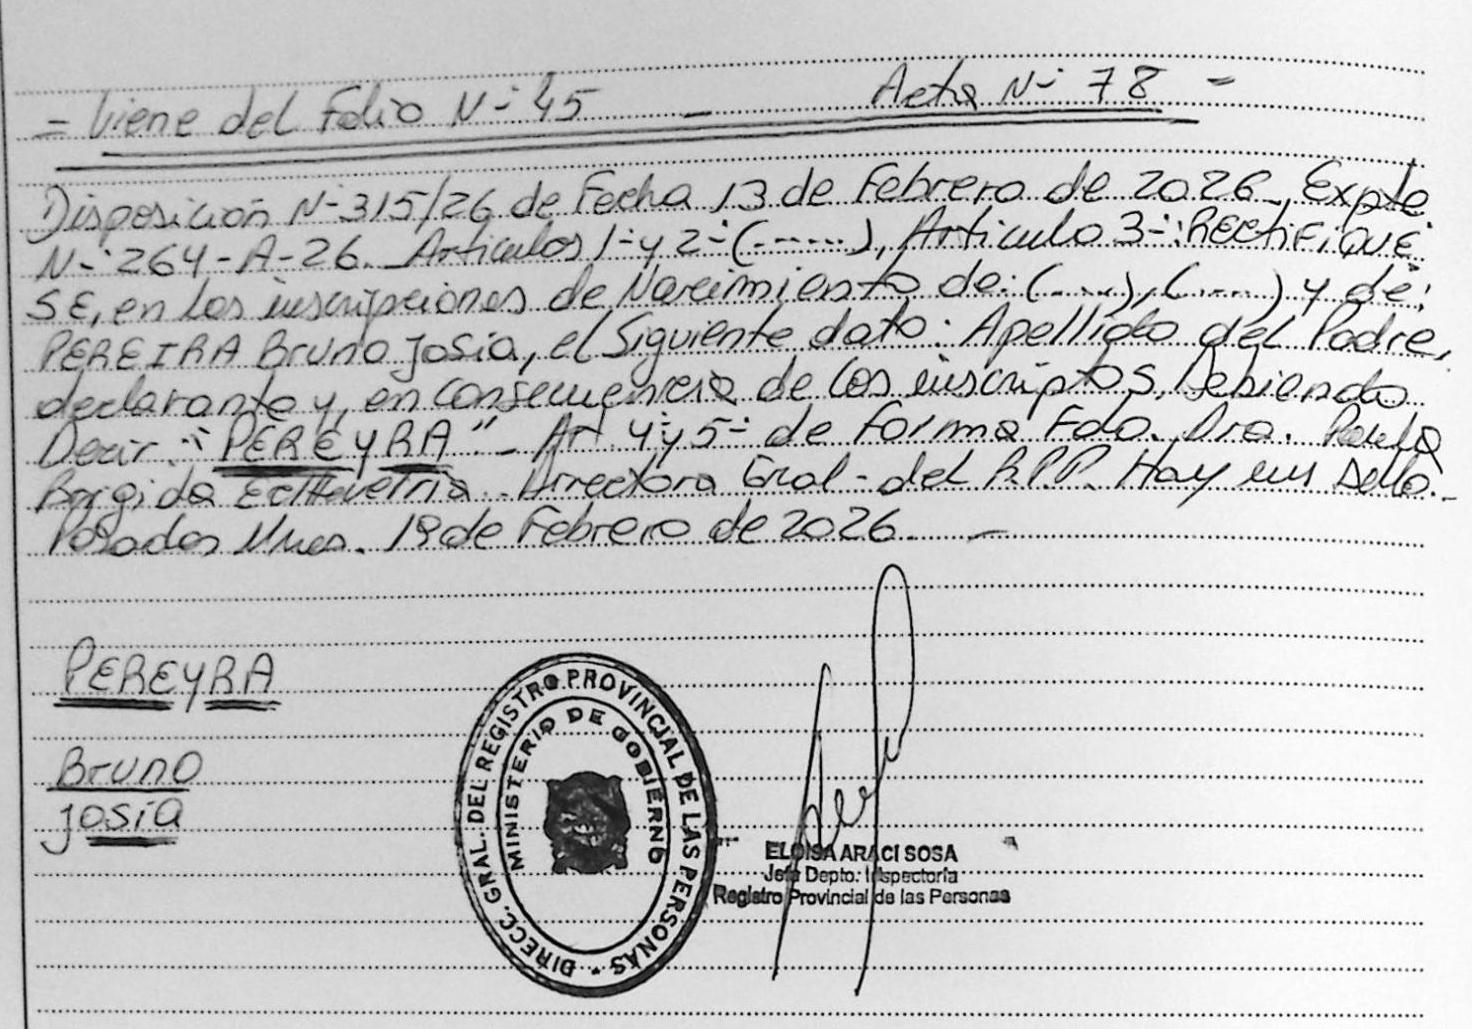 = Viene del Folio N- 45 - Acta N- 78 =
Disposición N-315/26 de Fecha 13 de Febrero de 2026_ Expte
N-264-A-26. Artículos 1- y 2- (......), Artículo 3-: RECTIFIQUE
SE, en las inscripciones de Nacimiento de: (.....), (.....) y de:
PEREIRA Bruno Josia, el Siguiente dato: Apellido del Padre,
declarante y, en consecuencia de los inscriptos, Debiendo
Decir: "PEREYRA" - Art. 4- y 5- de forma Fdo. Dra.
Directora Gral- del R.P.P. Hay un Sello.-
Posadas Mnes. 19 de Febrero de 2026. -
PEREYRA
Bruno
Josia
DIRECC. GRAL. DEL REGISTRO PROVINCIAL DE LAS PERSONAS
MINISTERIO DE GOBIERNO
ELOISA ARACI SOSA
Jefa Depto. Inspectoría
Registro Provincial de las Personas